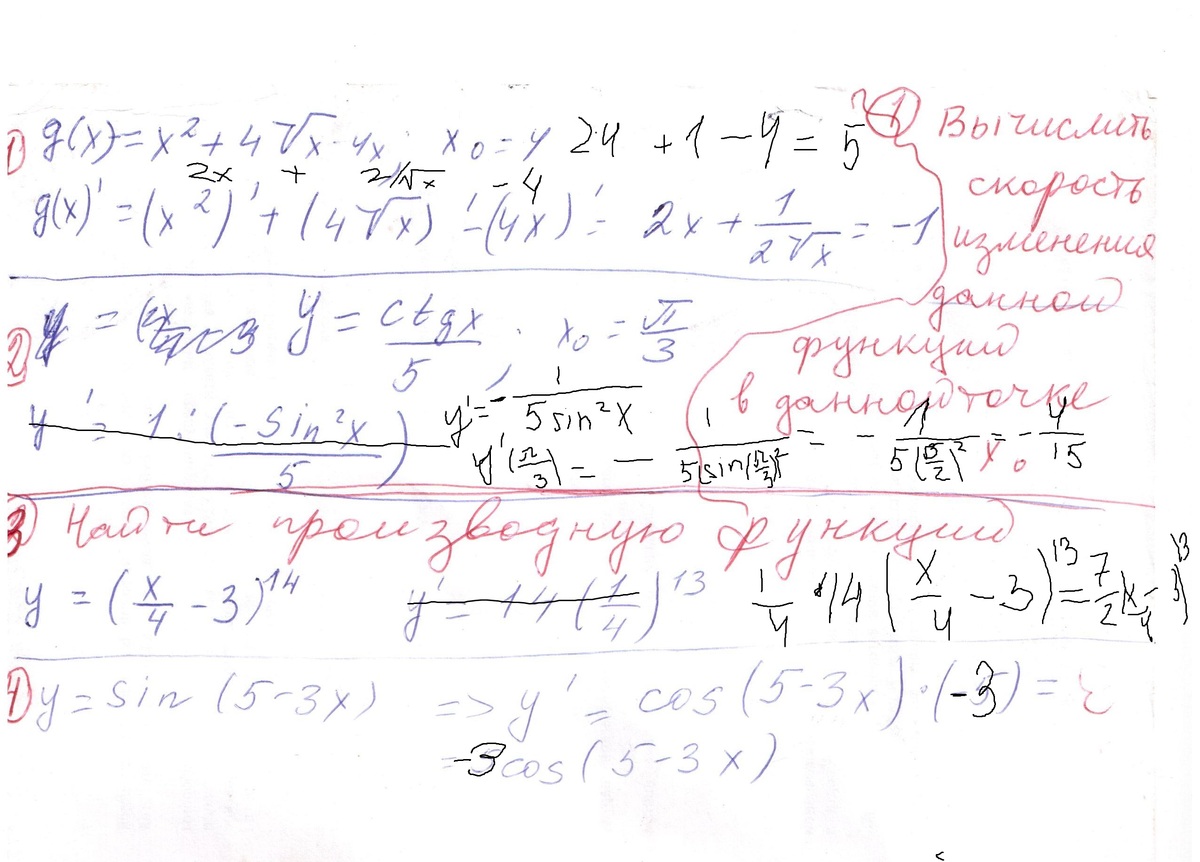 1) g(x) = x² + 4√x - 4x x₀ = 4 2·4 + 1 - 4 = 5
2x + 2/√x - 4
g(x)' = (x²)' + (4√x)' - (4x)' = 2x + 1/(2√x) = -1
1 Вычислить
скорость
изменения
данной
функций
в данной точке
x₀
2) y = ctgx/5 . x₀ = π/3
y' = 1 : (-sin²x/5)
y' = -1/(5sin²x)
y'(π/3) = - 1/(5(sin(π/3))²) = - 1/(5(√3/2)²) = - 4/15
3) Найти производную функций
y = (x/4 - 3)¹⁴ y' = 14(1/4)¹³ 1/4 · 14 (x/4 - 3)¹³ = 7/2(x/4 - 3)¹³
4) y = sin (5-3x) => y' = cos(5-3x)·(-3) =
= -3cos(5-3x)